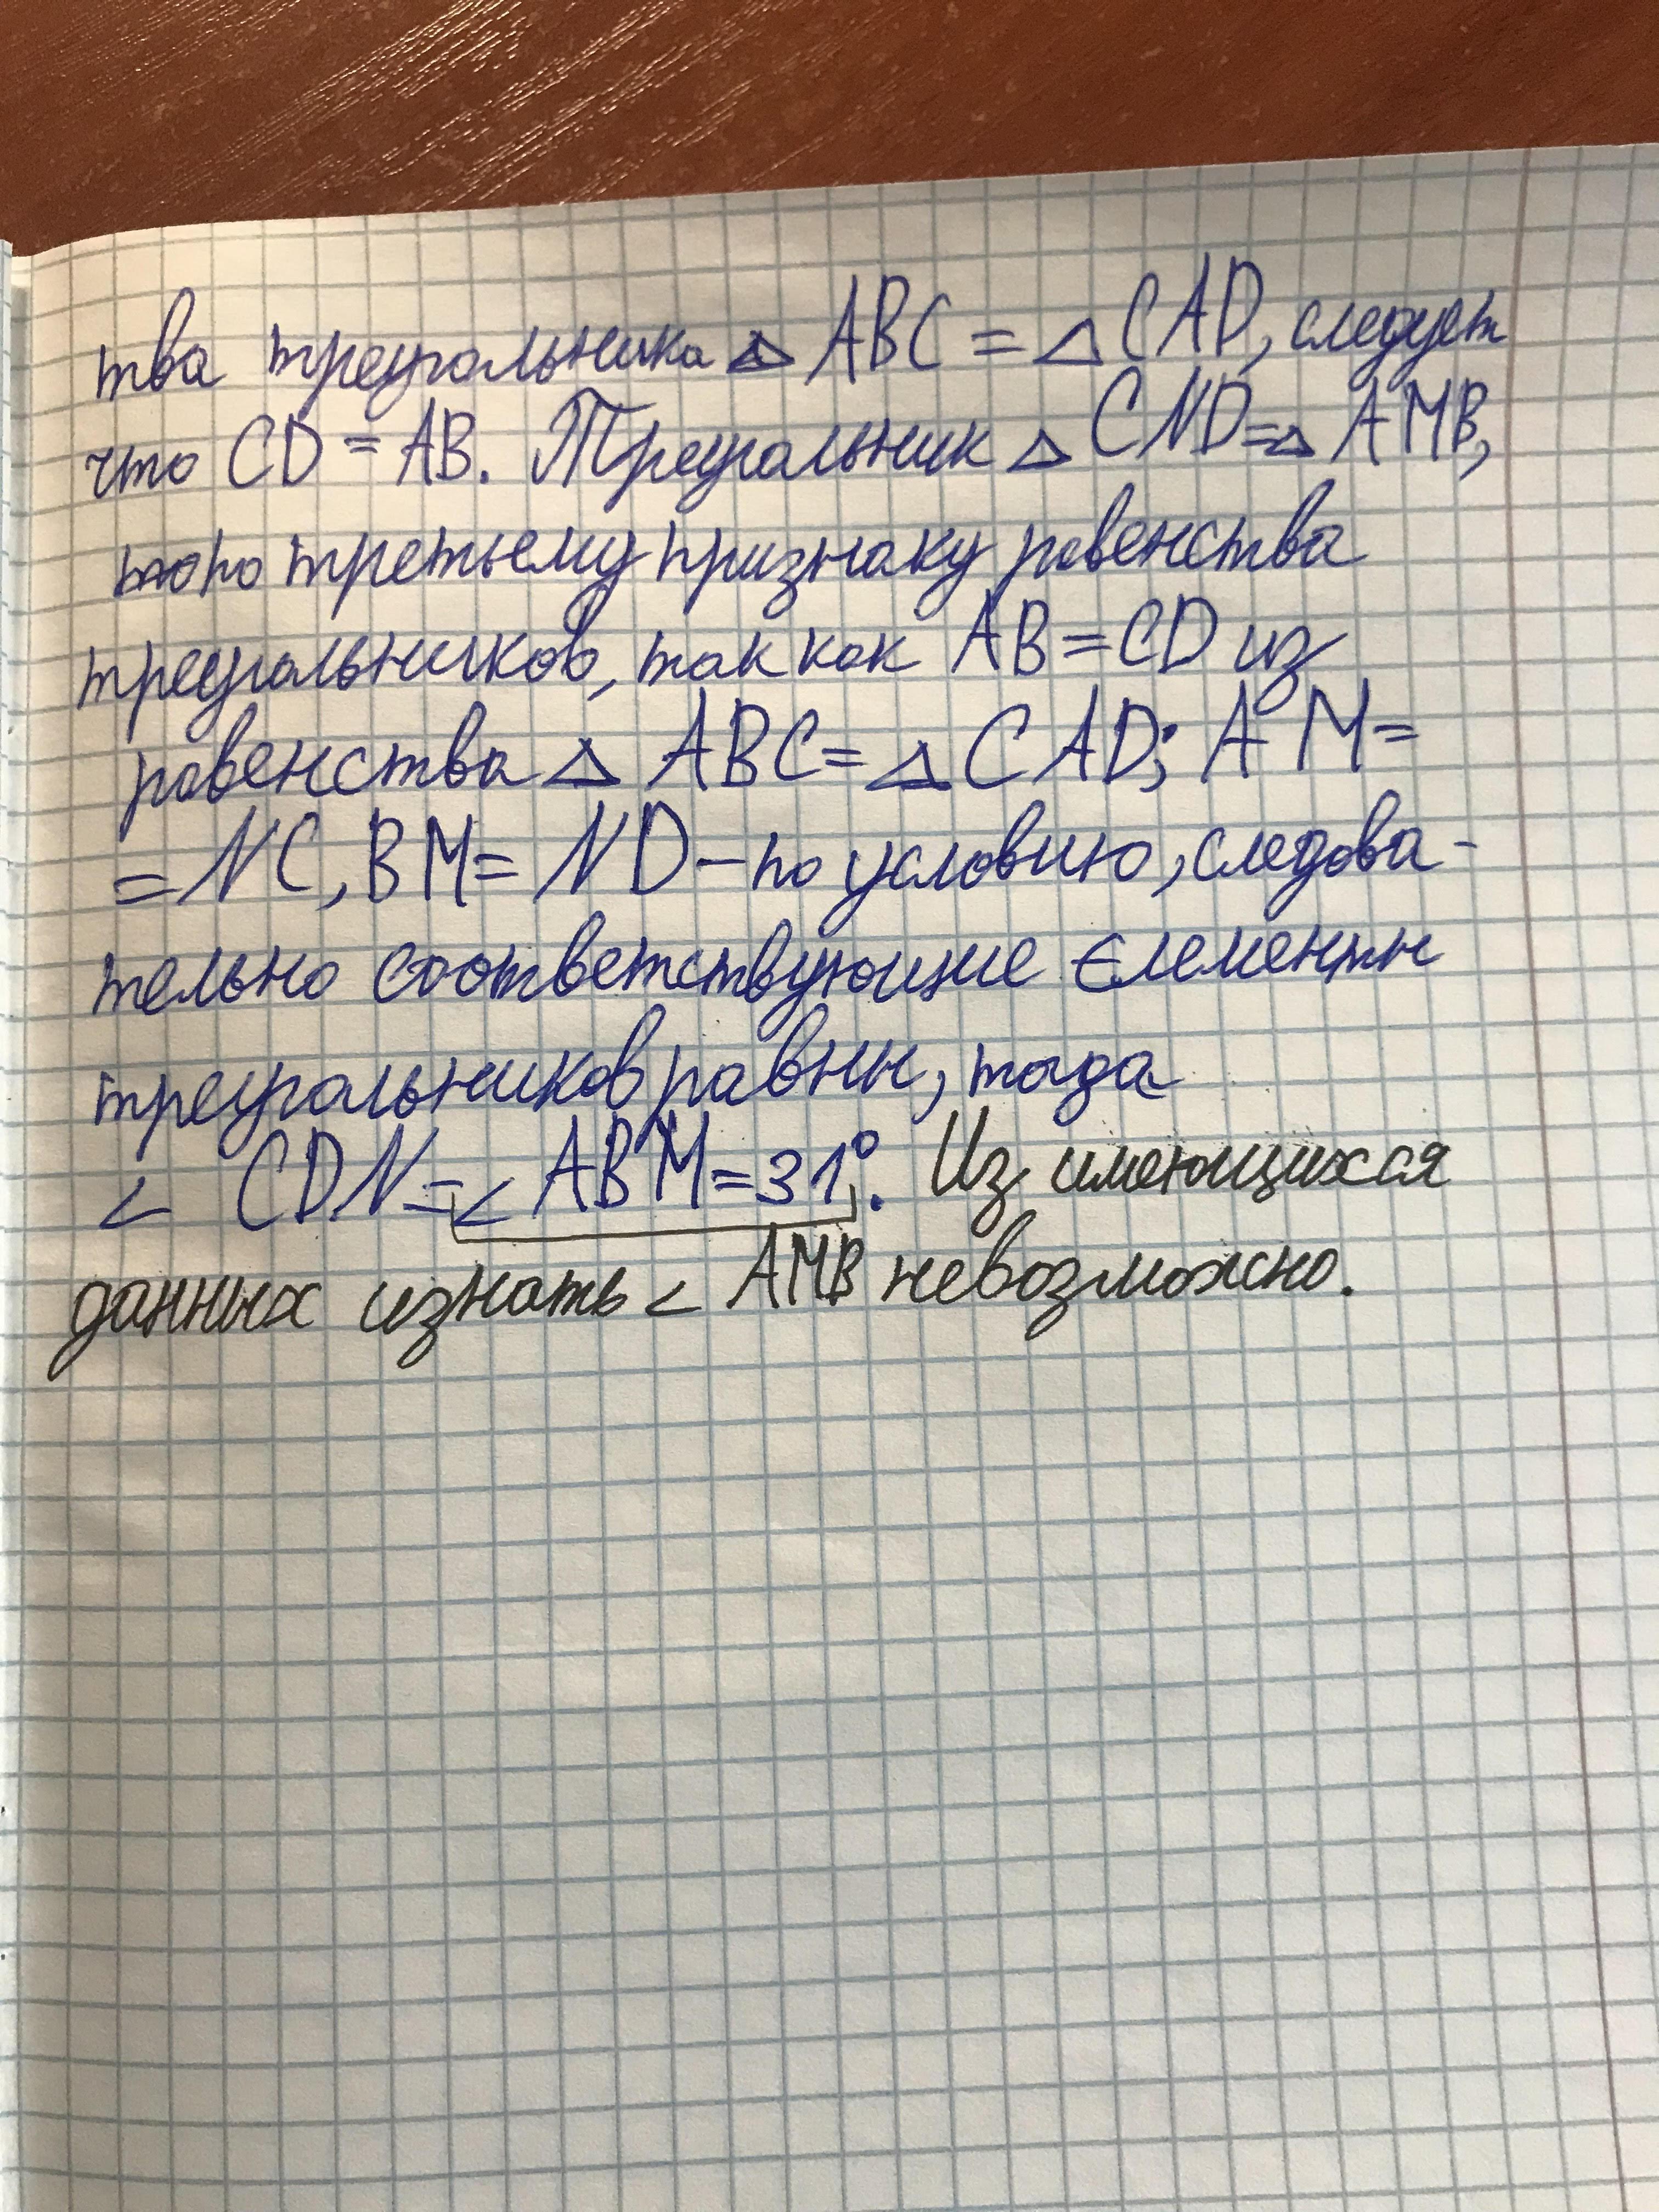 тва треугольника △ ABC = △ CAD, следует
что CD = AB. Треугольник △ CND = △ AMB,
по третьему признаку равенства
треугольников, так как AB = CD из
равенства △ ABC = △ CAD; AM =
= NC, BM = ND – по условию, следова-
тельно соответствующие єлементи
треугольников равни, тогда
< CDN = < ABM = 31°. Из имеющихся
данных узнать < AMB невозможно.